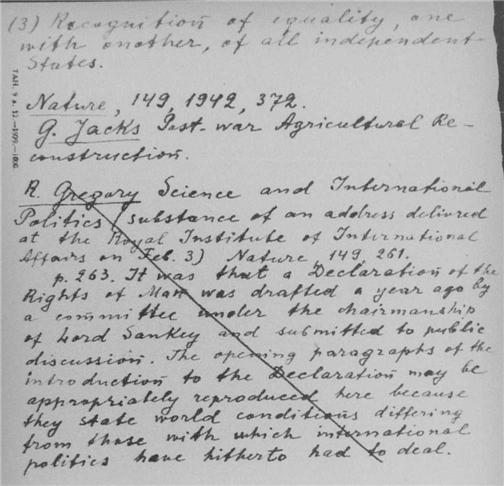 (3) Recognition of equality, one
with another, of all independent
States.
Nature, 149, 1942, 372.
G. Jacks Post-war Agricultural Re-
construction.
R. Gregory Science and International
Politics (substance of an address delivred
at the Royal Institute of International
Affairs on Feb. 3) Nature, 149, 261.
p. 263. It was that a Declaration of the
Rights of Man was drafted a year ago by
a committee under the chairmanship
of Lord Sankey and submitted to public
discussion. The opening paragraphs of the
introduction to the Declaration may be
appropriately reproduced here because
they state world conditions differing
from those with which international
politics have hitherto had to deal.